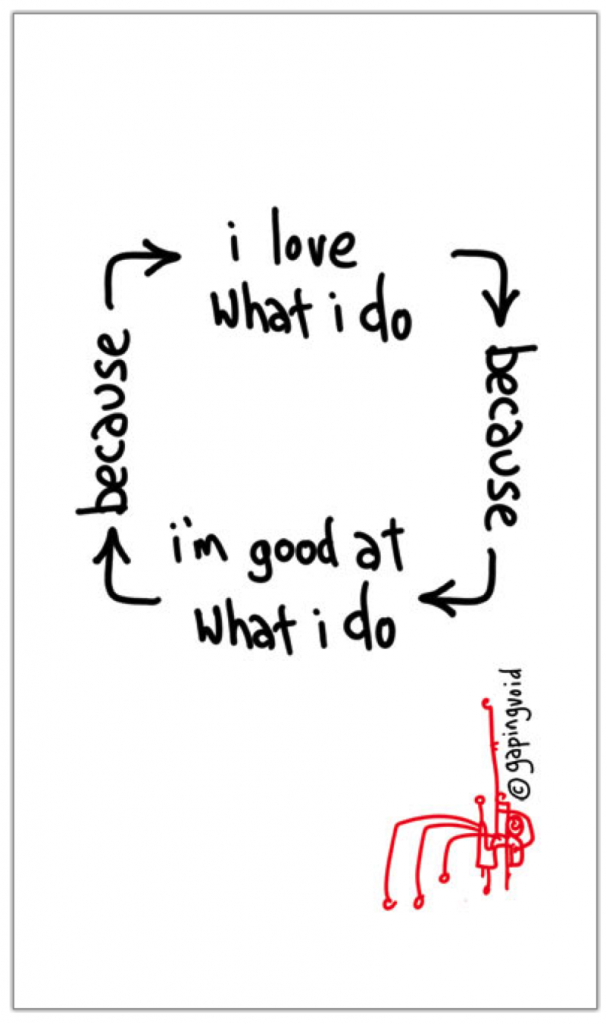 i love
what i do
because
i'm good at
what i do
because
© gapingvoid